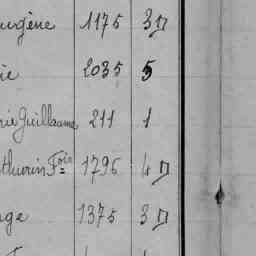 ugène 1175 3
ie 2035 5
rie Guillaume 211 1
thurin Fois 1796 4
nge 1375 3